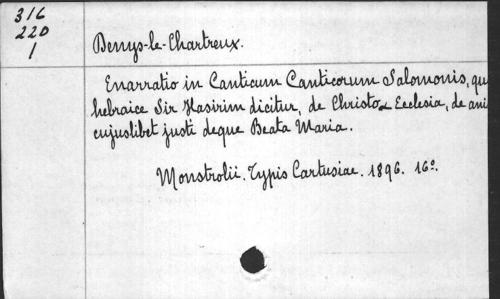 316
220
1
Denys-le-Chartreux.
Enarratio in Canticum Canticorum Salomonis, qu
hebraice Sir Hasirim dicitur, de Christo & Ecclesia, de ani
cujuslibet justi deque Beata Maria.
Monstrolii. Typis Cartusiae. 1896. 16º.